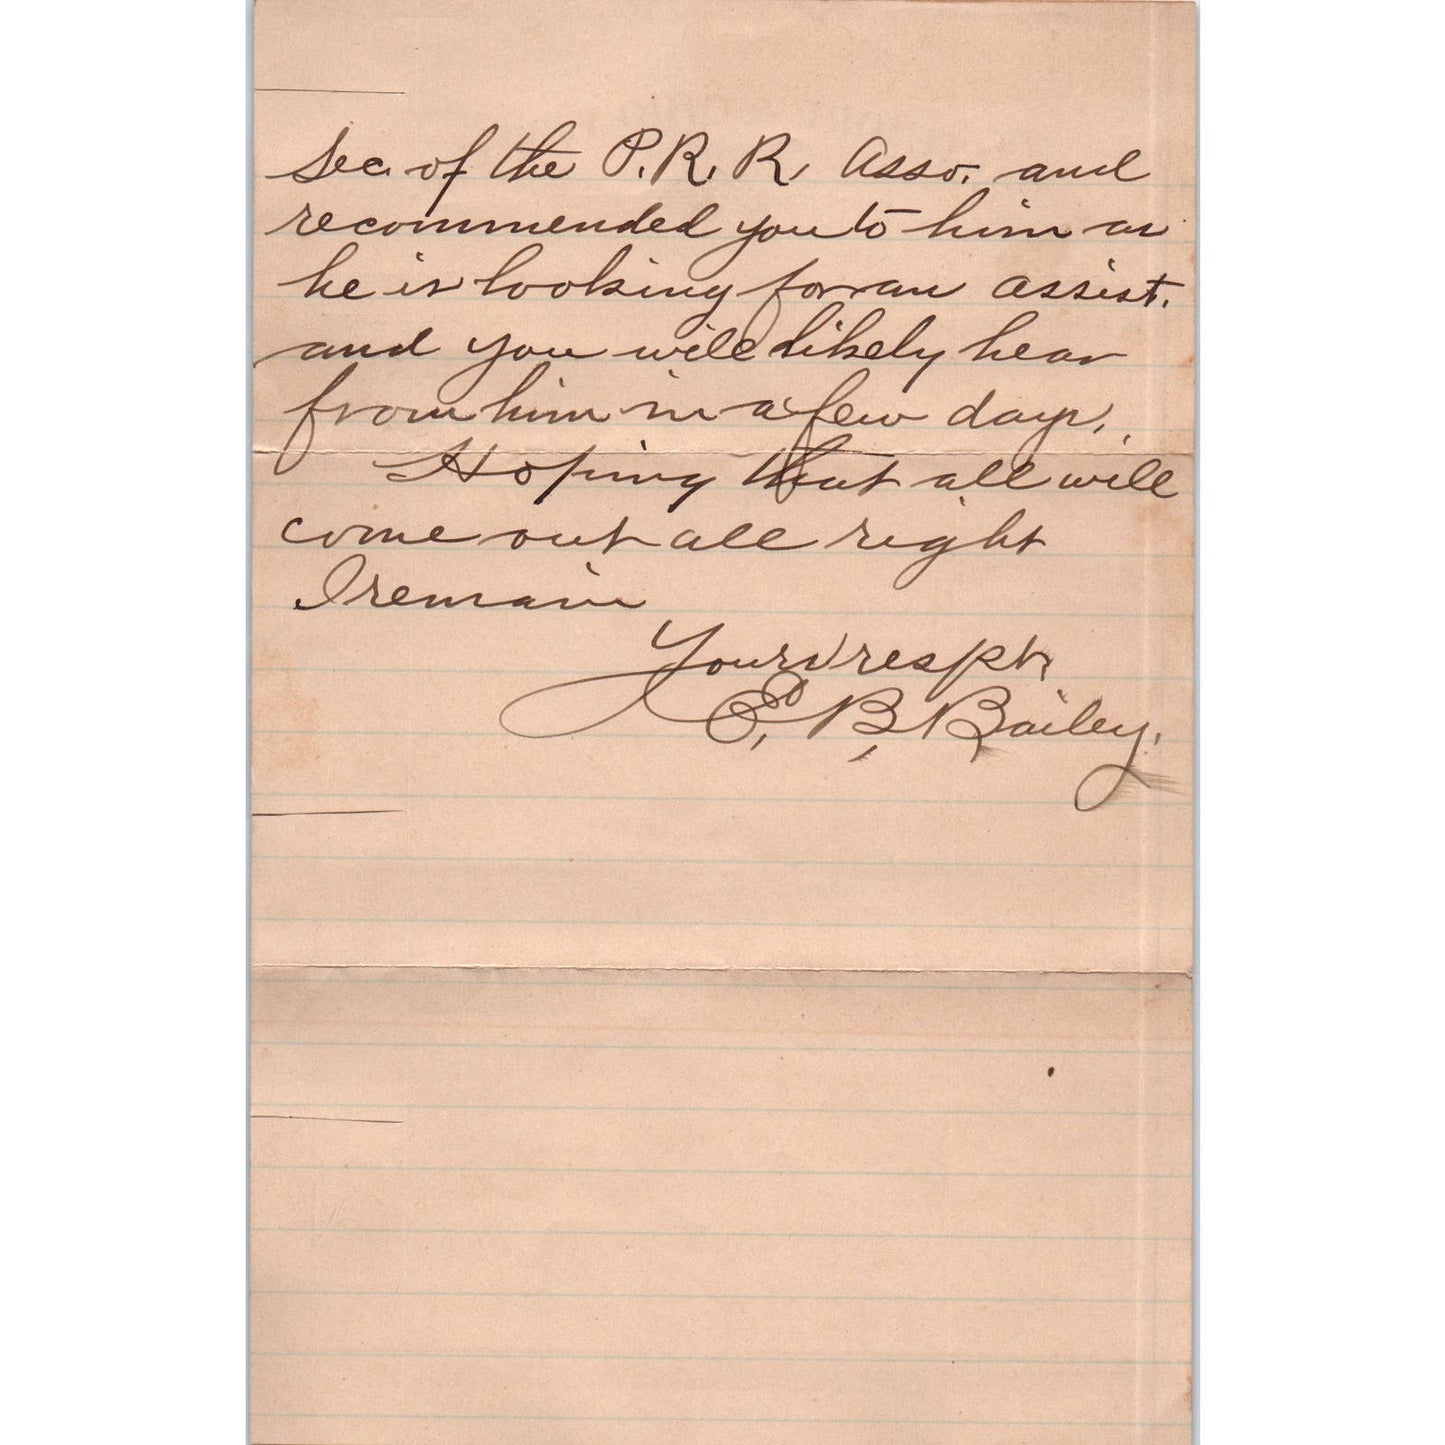 Sec. of the P. R. R. Asso. and
recommended you to him as
he is looking for an assist.
and you will likely hear
from him in a few days.
Hoping that all will
come out all right
I remain
Yours respt.
E. B. Bailey.